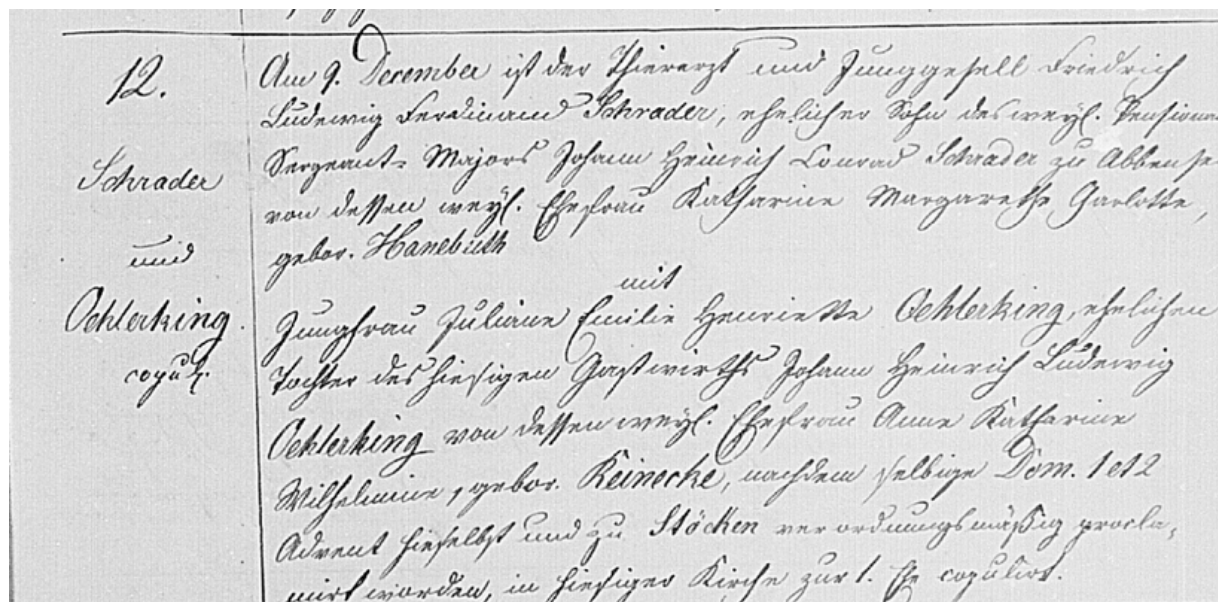 12.
Schrader
und
Oehlerking
copul.
Am 9. December ist der Thierarzt und Junggesell Friedrich
Ludewig Ferdinand Schrader, ehelicher Sohn des weyl. Pensionär
Sergeant-Majors Johann Heinrich Conrad Schrader zu Abbense
von dessen weyl. Ehefrau Katharine Margarethe Garlotte,
gebor. Hanebuth
mit
Jungfrau Juliane Emilie Henriette Oehlerking, ehelichen
Tochter des hiesigen Gastwirths Johann Heinrich Ludewig
Oehlerking von dessen weyl. Ehefrau Anne Katharine
Wilhelmine, gebor. Reinecke, nachdem selbige Dom. 1 et 2
Advent hieselbst und zu Stöcken verordnungsmäßig procla-
mirt worden, in hiesiger Kirche zur 1. Ehe copulirt.